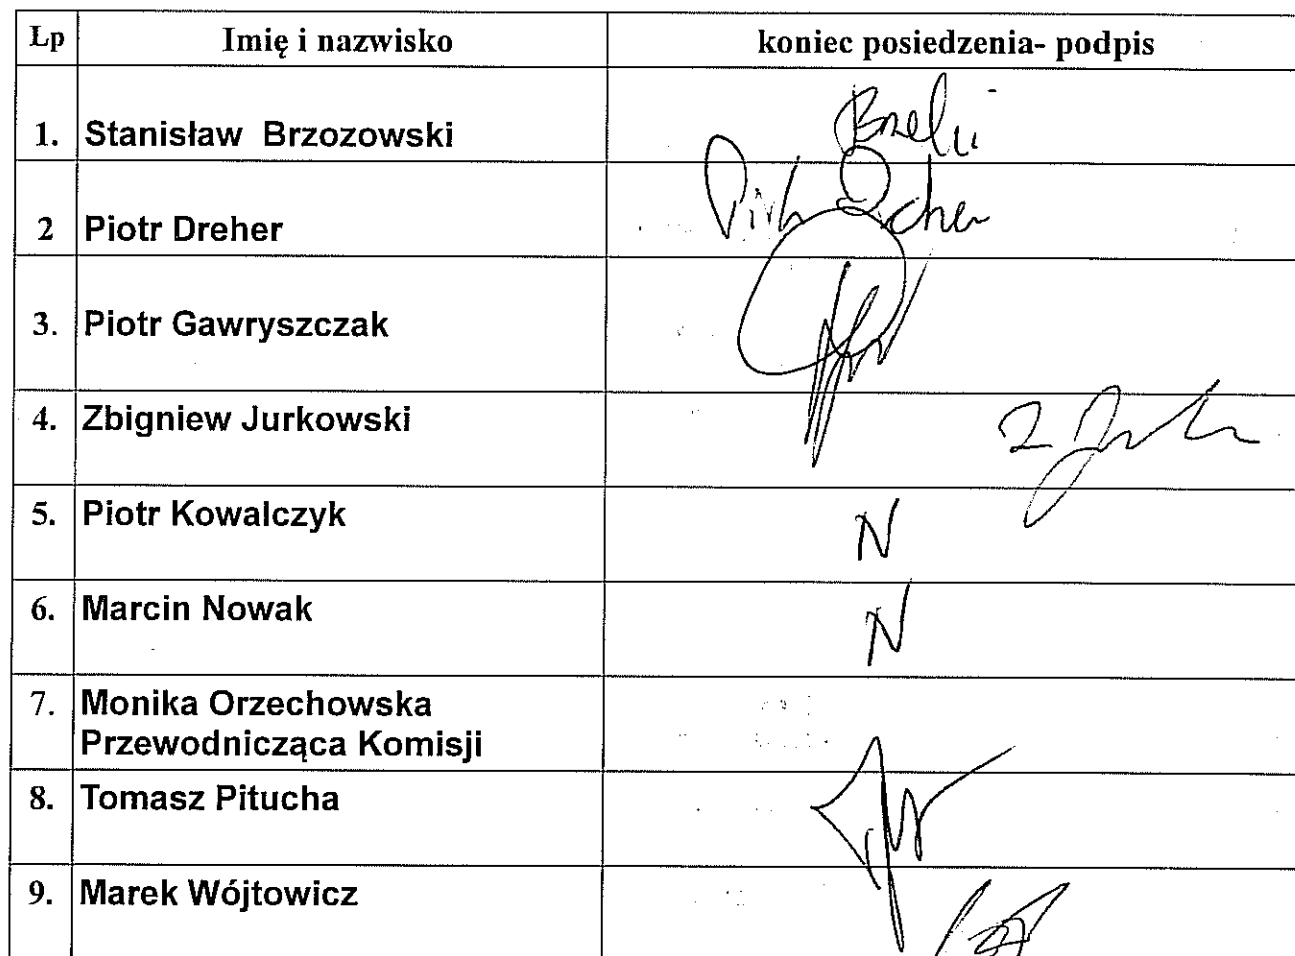 Lp Imię i nazwisko koniec posiedzenia- podpis
1. Stanisław Brzozowski
2 Piotr Dreher
3. Piotr Gawryszczak
4. Zbigniew Jurkowski
5. Piotr Kowalczyk N
6. Marcin Nowak N
7. Monika Orzechowska
Przewodnicząca Komisji
8. Tomasz Pitucha
9. Marek Wójtowicz